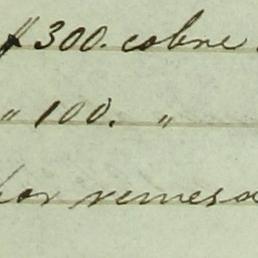 $300. cobre
" 100. "
por remesa